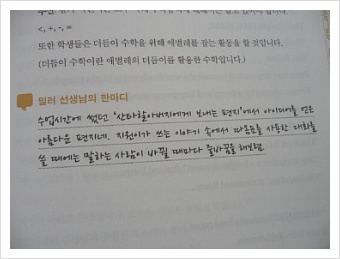 <, +, -, =
또한 학생들은 더듬이 수학을 위해 애벌레를 잡는 활동을 할 것입니다.
(더듬이 수학이란 애벌레의 더듬이를 활용한 수학입니다.)
밀러 선생님의 한마디
수업시간에 썼던 '산타할아버지에게 보내는 편지'에서 아이디어를 얻은
아름다운 편지네. 지원이가 쓰는 이야기 속에서 따옴표를 사용한 대화를
쓸 때에는 말하는 사람이 바뀔 때마다 줄바꿈을 해보렴.